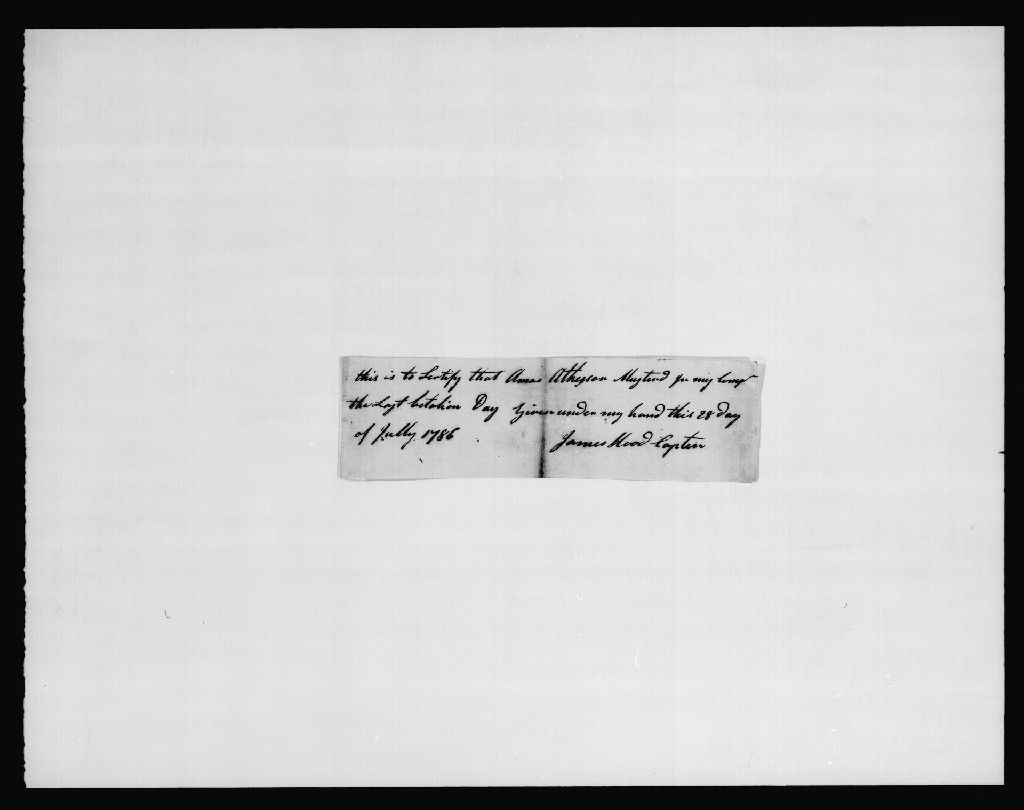 this is to Certify that Amos Atkepson Mustird in my Comp
the Last batalion Day Given under my hand this 28 day
of Jully 1786
James Hood Captin